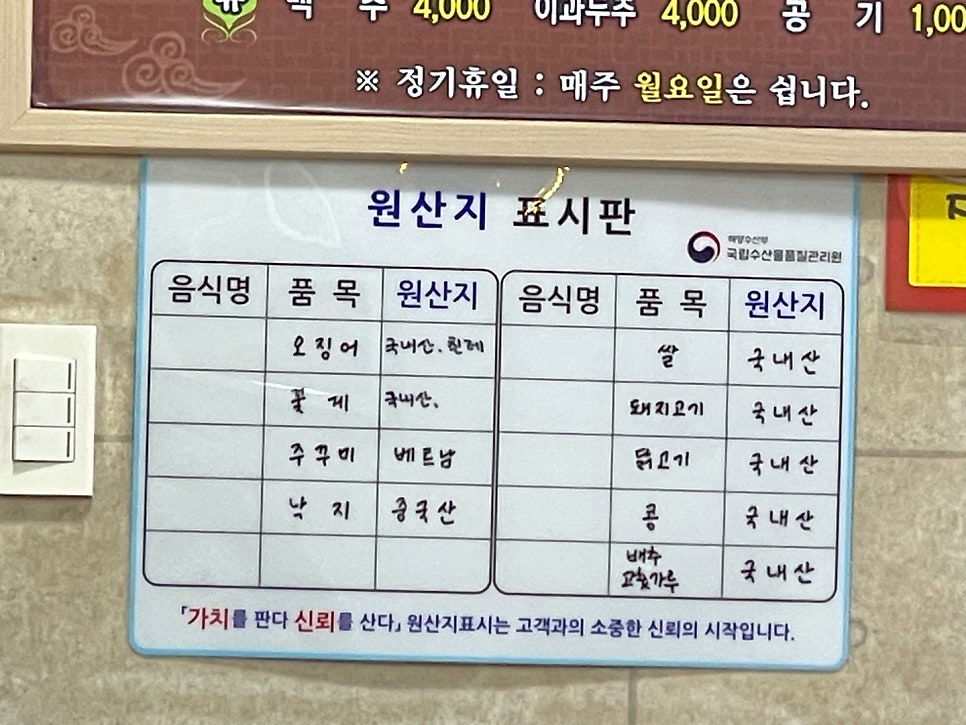 주 4,000 이과두주 4,000 공 기
※ 정기휴일 : 매주 월요일은 쉽니다.
원산지 표시판
해양수산부
국립수산물품질관리원
음식명 품 목 원산지 음식명 품 목 원산지
오징어 국내산. 칠레 쌀 국내산
꽃 게 국내산. 돼지고기 국내산
주꾸미 베트남 닭고기 국내산
낙 지 중국산 콩 국내산
배추
고춧가루 국내산
「가치를 판다 신뢰를 산다」 원산지표시는 고객과의 소중한 신뢰의 시작입니다.